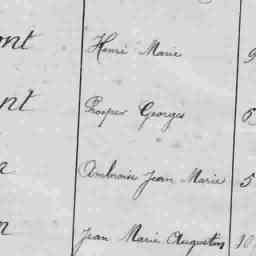 ont Henri Marie 9
nt Prosper Georges 6
Ambroise Jean Marie 5
n Jean Marie Augustin 10